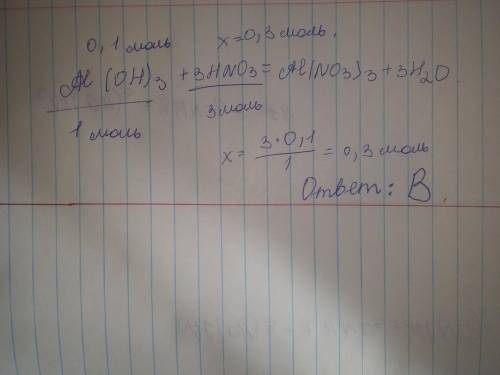 0,1 моль x=0,3 моль.
Al(OH)3 + 3HNO3 = Al(NO3)3 + 3H2O
1 моль 3 моль
x = 3·0,1 / 1 = 0,3 моль
Ответ: В.